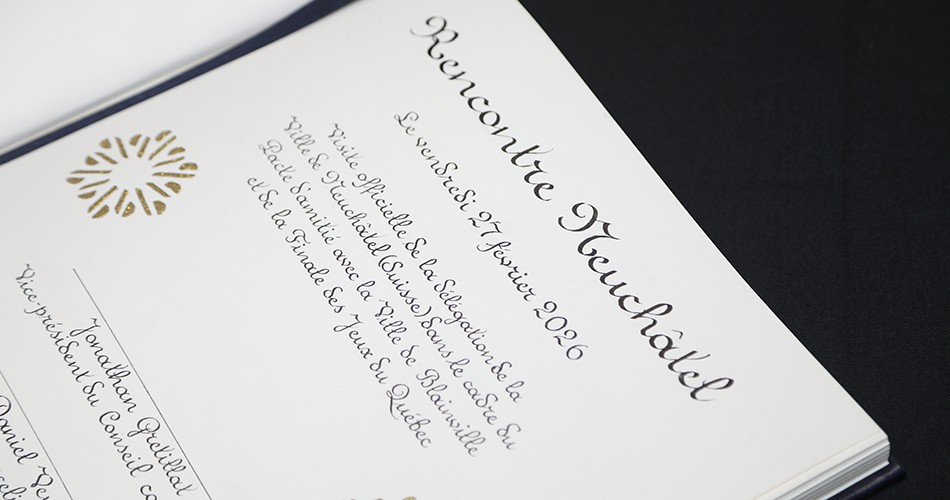 Rencontre Neuchâtel
Le vendredi 27 février 2026
Visite officielle de la délégation de la
Ville de Neuchâtel (Suisse) dans le cadre du
Pacte d'amitié avec la Ville de Blainville
et de la Finale des Jeux du Québec
Jonathan Gretillat
Vice-président du Conseil
Daniel